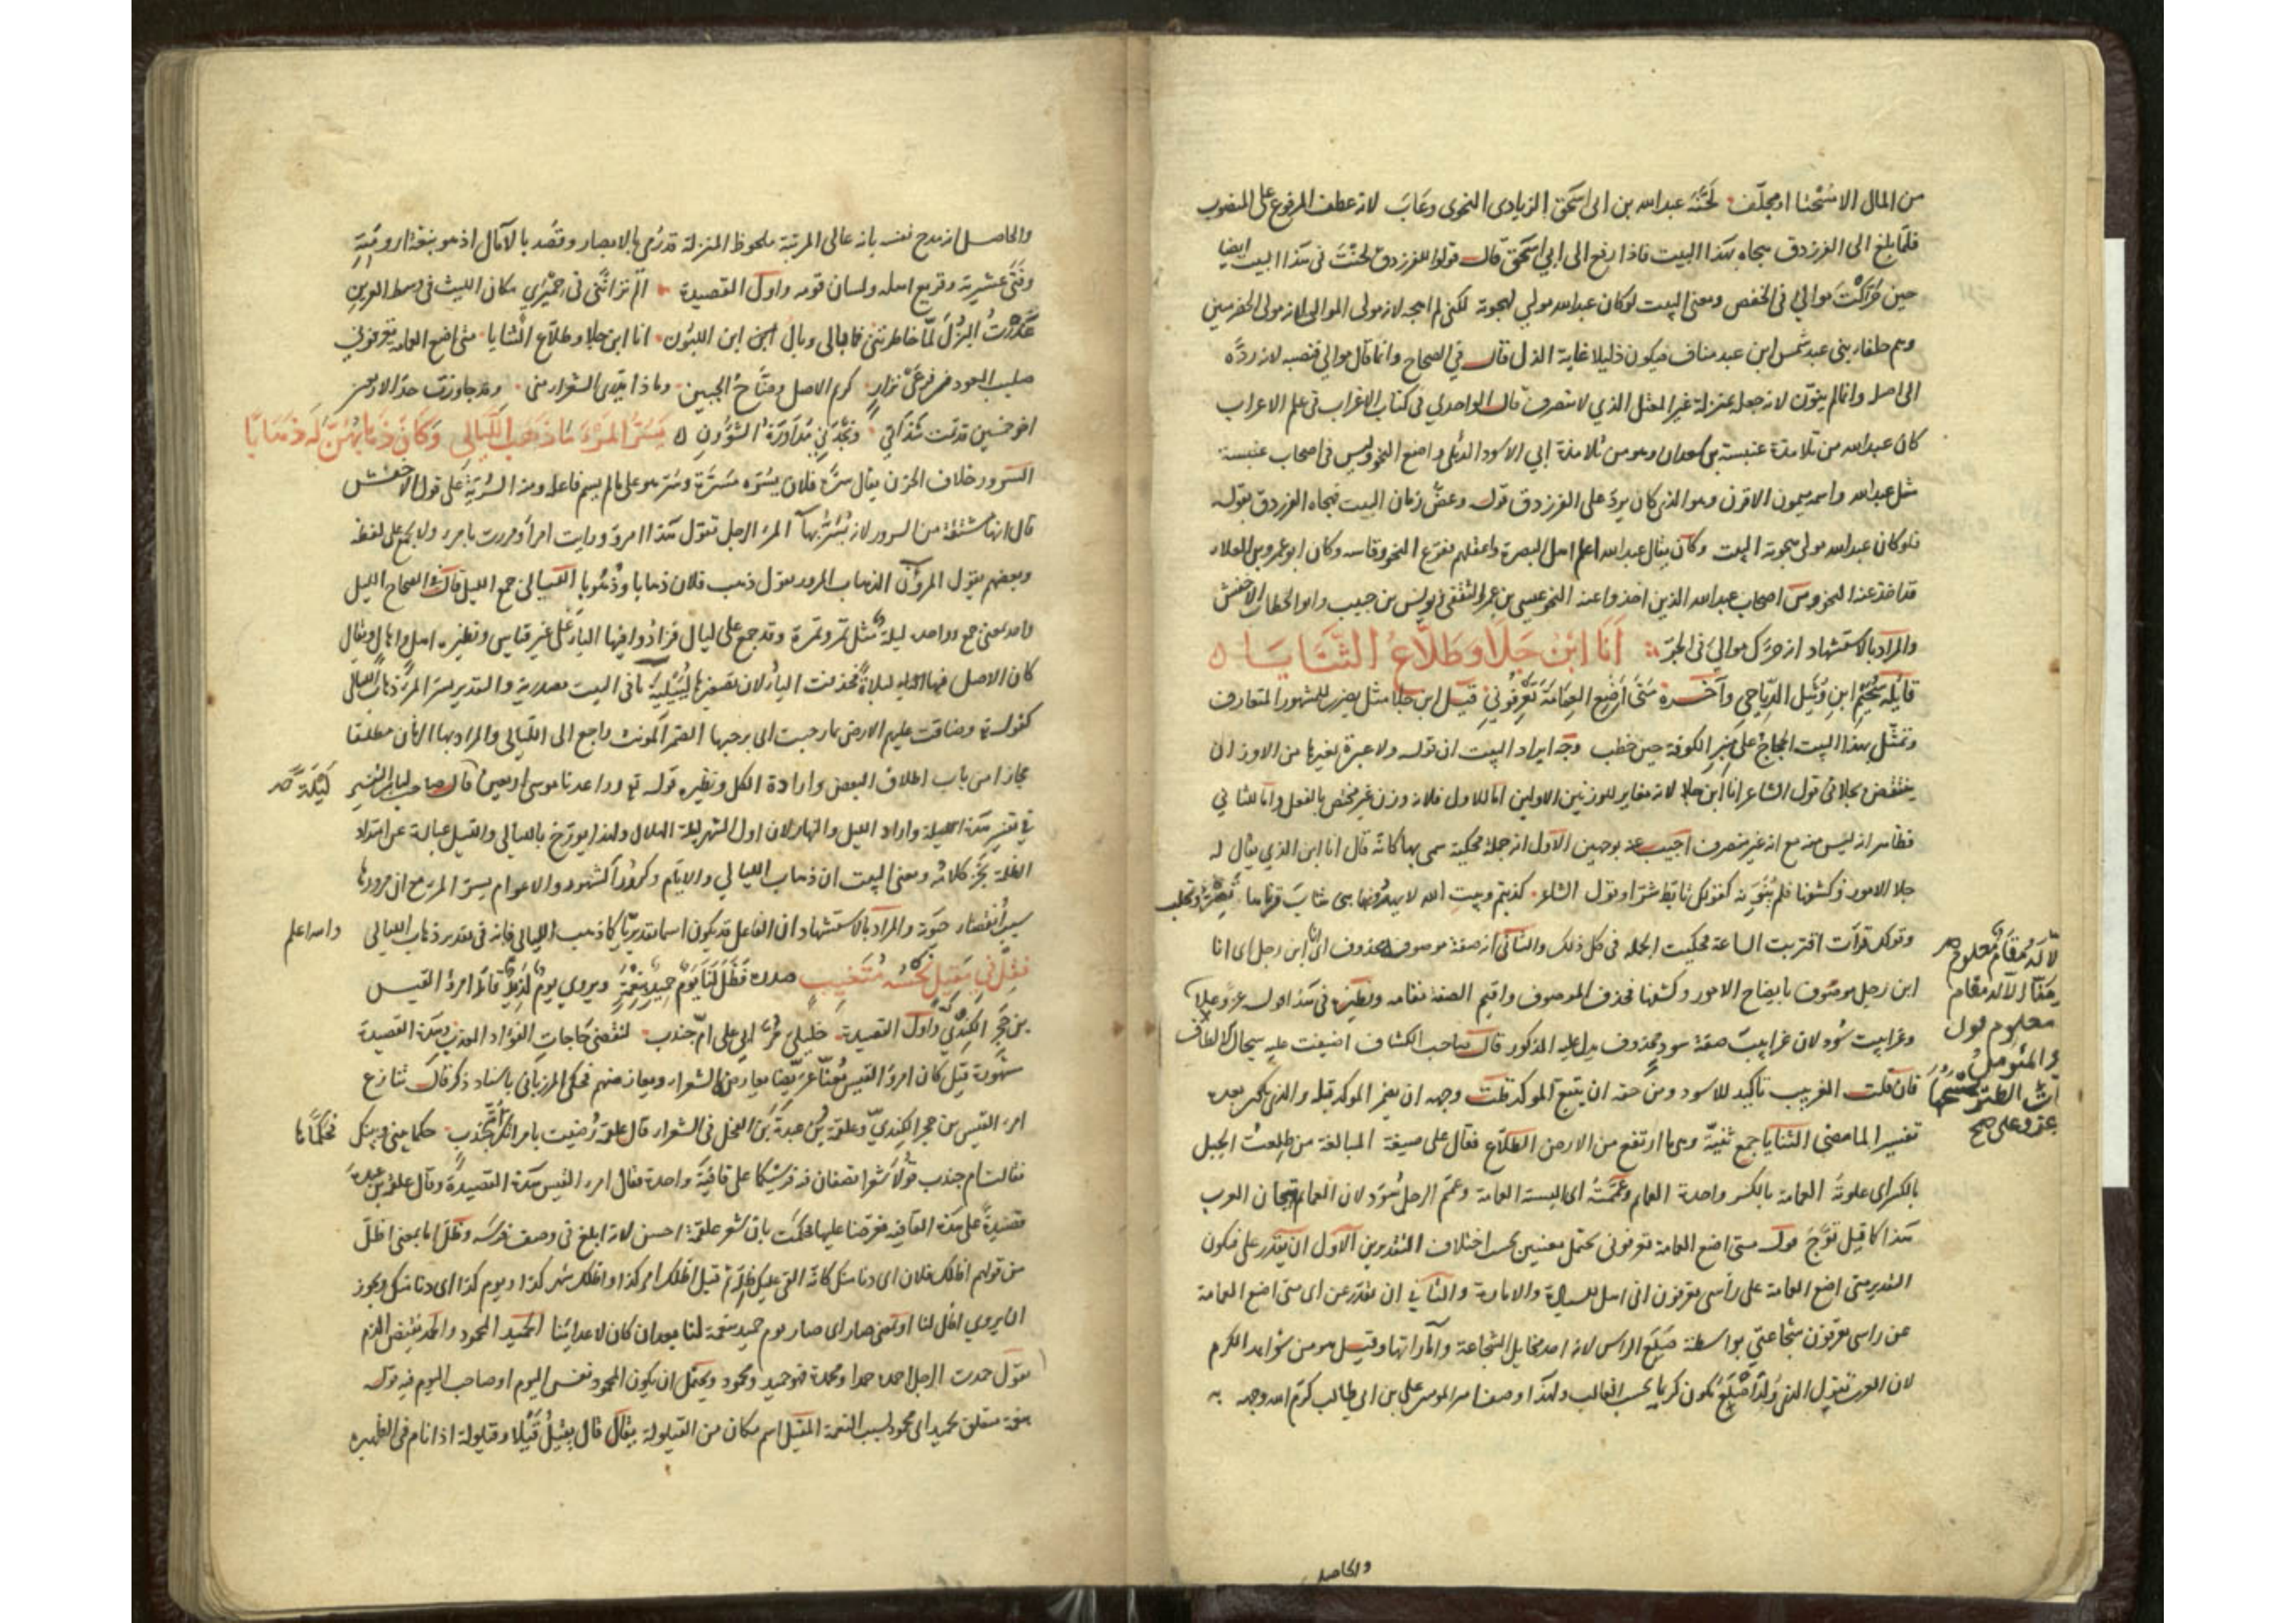 من المال الا مسحتا او مجلف لحنه عبدالله بن ابى اسحق الزيادى النحوى وعاب لانه عطف المرفوع على المنصوب
فلما بلغ الى الفرزدق هجاه بهذا البيت فاذا رفع الى ابي اسحق قال قولوا للفرزدق لحنت فى هذا البيت ايضا
حين حركت موالي فى الخفض ومعنى البيت لو كان عبدالله مولى لهجوته لكنى لم اهجه لانه مولى الموالى لانه مولى الحضرميين
وهم حلفاء بنى عبد شمس ابن عبد مناف فيكون ذليلا غاية الذل قال في الصحاح وانما قال موالي فنصبه لانه رده
الى اصله وانما لم ينون لانه جعله بمنزلة غير المعتل الذي لا ينصرف قال الواحدي فى كتاب الاغراب فى علم الاعراب
كان عبدالله من تلامذة عنبسة بن معدان وهو من تلامذة ابي الاسود الدئلى واضع النحو وليس فى اصحاب عنبسة
مثل عبدالله واسمه ميمون الاقرن وهو الذى كان يرد على الفرزدق قوله وعض زمان البيت فهجاه الفرزدق بقوله
فلو كان عبدالله مولى هجوته البيت وكان يقال عبدالله اعلم اهل البصرة واعقلهم ففرع النحو وقاسه وكان ابو عمرو بن العلاء
قد اخذ عنه النحو ومن اصحاب عبدالله الذين اخذوا عنه النحو عيسى بن عمر الثقفى ويونس بن حبيب وابو الخطاب الاخفش
والمراد بالاستشهاد انه حرك موالي فى الجر انا ابن جلا وطلاع الثنايا
قائله سحيم ابن وثيل الرياحي وآخره متى اضع العمامة تعرفوني قيل ابن جلا مثل يضرب للمشهور المتعارف
وتمثل بهذا البيت الحجاج على منبر الكوفة حين خطب وجه ايراد البيت ان قوله ولا عبرة بغيرها من الاوزان
ينتقض بجلا فى قول الشاعر انا ابن جلا لانه مغاير للوزنين الاولين اما للاول فلانه وزن غير مختص بالفعل واما للثاني
فظاهر انه ليس منه مع انه غير منصرف اجيب عنه بوجهين الاول انه جملة محكية سمى بها كانه قال انا ابن الذي يقال له
جلا الامور وكشفها فلم ينونه كقولك تابط شرا وقول الشاعر كذبتم وبيت الله لا تنكحونها بنى شاب قرناها تصر وتحلب
وقولك قرأت اقتربت الساعة فحكيت الجملة فى كل ذلك والثانى انه صفة موصوف محذوف اى انا ابن رجل اى انا
ابن رجل موصوف بايضاح الامور وكشفها فحذف الموصوف واقيم الصفة مقامه ونظيره فى هذا قوله عز وعلا
وغرابيب سود لان غرابيب صفة سود محذوف يدل عليه المذكور قال صاحب الكشاف
فان قلت الغربيب تأكيد للاسود ومن حقه ان يتبع المؤكد قلت وجهه ان يضمر المؤكد قبله والذى يكون بعده
تفسيرا لما مضى الثنايا جمع ثنية وهى ما ارتفع من الارض الطلاع فعال على صيغة المبالغة من طلعت الجبل
بالكسر اى علوته العمامة بالكسر واحدة العمائم وعممته اى البسته العمامة وعمم الرجل سود لان العمائم تيجان العرب
هذا كما قيل توج قوله متى اضع العمامة تعرفونى يحتمل معنيين بحسب اختلاف التقديرين الاول ان يقدر على فيكون
التقدير متى اضع العمامة على رأسى تعرفون انى اهل للسيادة والامارة والثاني ان يقدر عن اى متى اضع العمامة
عن راسى تعرفون شجاعتي بواسطة صلع الراس لانه احد مخايل الشجاعة وآماراتها وقيل هو من شواهد الكرم
لان العرب تقول الذى ولد اصلع يكون كريما بحسب الغالب ولهذا وصف امير المؤمنين علي بن ابي طالب كرم الله وجهه به
والحاصل
والحاصل انه مدح نفسه بانه عالى المرتبة ملحوظ المنزلة قد رمى بالابصار وقصد بالآمال اذ هو نبعة ارومته
وفتى عشيرته وقريع اهله ولسان قومه واول القصيدة الم تر اننى فى حميري مكان الليث فى وسط العرين
عذرت البزل لما خاطرتنى فما بالى وبال ابن اللبون انا ابن جلا وطلاع الثنايا متى اضع العمامة تعرفونى
صليب العود من فرعى نزار كريم الاصل وضاح الجبين وماذا يبتغى الشعراء منى وقد جاوزت حد الاربعين
اخو خمسين قد تمت شذاتي ونجذنى مداورة الشؤون يسر المرء ما ذهب الليالي وكان ذهابهن له ذهابا
السرور خلاف الحزن يقال سره فلان يسره مسرة وسر هو على ما لم يسم فاعله ومنه السرية على قول الاخفش
قال انها مشتقة من السرور لانه يسر بها المرء الرجل تقول هذا امرؤ ورايت امرأ ومررت بامرء ولا يجمع على لفظه
وبعضهم يقول المرؤن الذهاب المرور يقول ذهب فلان ذهابا وذهوبا الليالى جمع الليل قال فى الصحاح الليل
واحد بمعنى جمع وواحده ليلة مثل تمر وتمرة وقد جمع على ليال فزادوا فيها الياء على غير قياس ونظيره اهل واهال ويقال
كان الاصل فيها ليلاة فحذفت الياء لان تصغيرها لييلية ما فى البيت مصدرية والتقدير يسر المرء ذهاب الليالى
كقوله تع وضاقت عليهم الارض بما رحبت اى برحبها الضمير المؤنث راجع الى الليالى والمراد بها الزمان مطلقا
مجازا من باب اطلاق البعض وارادة الكل ونظيره قوله تع وواعدنا موسى اربعين قال صاحب لباب التفسير
ليلة صح
فى تفسير هذه الليلة واراد الليل والنهار لان اول الشهر ليلة الهلال ولهذا يورخ بالليالى والليل عبارة عن امتداد
الظلمة نجز كلامه ومعنى البيت ان ذهاب الليالي والايام وكرور الشهور والاعوام يسر المرء مع ان مرورها
سبب انقضاء حيوته والمراد بالاستشهاد ان الفاعل قد يكون اسما تقديريا كما ذهب الليالى فانه فى تقدير ذهاب الليالى والله اعلم
فقل فى مقيل نحسه متغيب صدره فظل لنا يوم حميد بنعمة ويروى يوم لذيذ قائله امرؤ القيس
بن حجر الكندي واول القصيدة خليلي مرا بى على ام جندب لنقضى حاجات الفؤاد المعذب وهذه القصيدة
مشهورة قيل كان امرؤ القيس معنا عريضا يعارض الشعراء ويعارضهم فحكى المرزبانى باسناد ذكر قال تنازع
امرء القيس بن حجر الكندي وعلقمة بن عبدة بن الفحل فى الشعراء قال علقمة رضيت بامرأتك ام جندب حكما بينى وبينك فحكماها
فقالت ام جندب قولا شعرا تصفان فيه فرسيكما على قافية واحدة فقال امرء القيس هذه القصيدة وقال علقمة بن عبدة
قصيدة على هذه القافية فعرضا عليها فحكمت بان شعر علقمة احسن لانه ابلغ فى وصف فرسه وظل اما بمعنى اظل
من قولهم اظلك فلان اى دنا منك كانه القى عليك ظله ثم قيل اظلك امر كذا واظلك شهر كذا ويوم كذا اى دنا منك ويجوز
ان يروى اظل لنا او بمعنى صار اى صار يوم حميد بنعمة لنا بعد ان كان لاعدائنا الحميد المحمود والحمد نقيض الذم
تقول حمدت الرجل احمده حمدا ومحمدة فهو حميد ومحمود ويحتمل ان يكون المحمود نفس اليوم او صاحب اليوم فيه قوله
بنعمة متعلق بحميد اى محمود بسبب النعمة المقيل اسم مكان من القيلولة يقال قال يقيل قيلا وقيلولة اذا نام فى الظهيرة